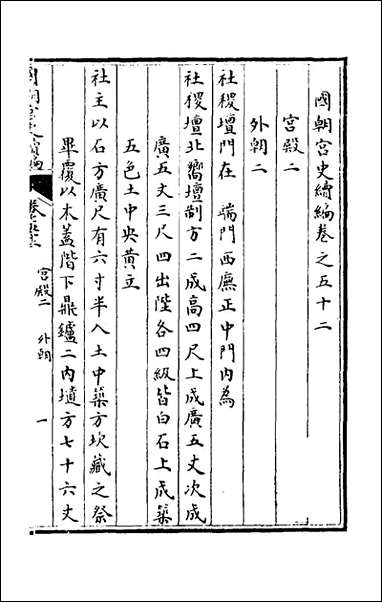 國朝宮史續編卷之五十二
宮殿二
外朝二
社稷壇門在 端門西廡正中門內為
社稷壇北嚮壇制方二成高四尺上成廣五丈次成
廣五丈三尺四出陛各四級皆白石上成築
五色土中央黃立
社主以石方廣尺有六寸半入土中築方坎藏之祭
畢覆以木蓋階下鼎鑪二內壝方七十六丈
國朝宮史續編
卷之五十二
宮殿二 外朝
一